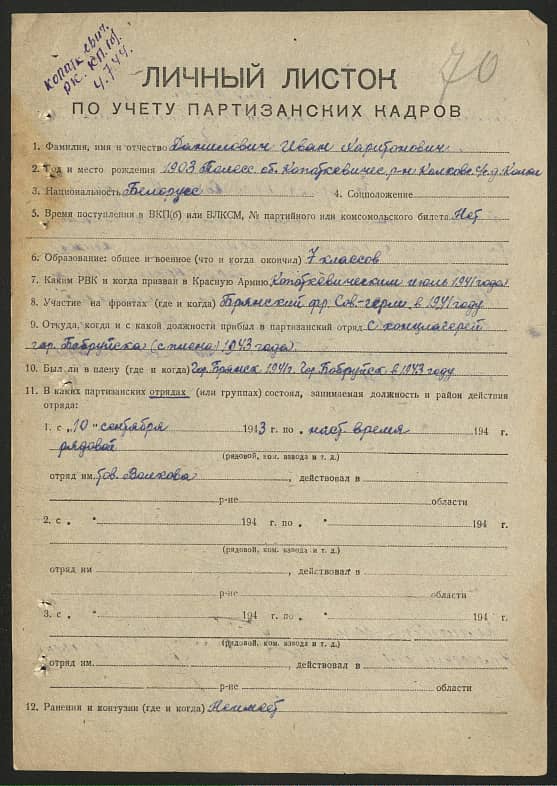 Копаткевич.
РК. КП(б)
4.7.44.
70
ЛИЧНЫЙ ЛИСТОК
ПО УЧЕТУ ПАРТИЗАНСКИХ КАДРОВ
1. Фамилия, имя и отчество Данилович Иван Харитонович
2. Год и место рождения 1903 Полесс. об. Копаткевичес. р-н Колковс. с/с д. Колки
3. Национальность Белорусс 4. Соцположение
5. Время поступления в ВКП(б) или ВЛКСМ, № партийного или комсомольского билета Нет
6. Образование: общее и военное (что и когда окончил) 7 классов
7. Каким РВК и когда призван в Красную Армию Копаткевическим июль 1941 года)
8. Участие на фронтах (где и когда) Брянский фр. Сов-герм. в 1941 году
9. Откуда, когда и с какой должности прибыл в партизанский отряд с концлагерей
гор. Бобруйска (с плена) 1943 года)
10. Был ли в плену (где и когда) Гор. Брянск 1941г. Гор. Бобруйск в 1943 году
11. В каких партизанских отрядах (или группах) состоял, занимаемая должность и район действия
отряда:
1. с „10" сентября 1943 г. по наст. время 194 г.
рядовой
(рядовой, ком. взвода и т. д.)
отряд им. Тов. Волкова, действовал в
р-не области
2. с „ " 194 г. по „ " 194 г.
(рядовой, ком. взвода и т. д.)
отряд им , действовал в
р-не области
3. с „ " 194 г. по „ " 194 г.
(рядовой, ком. взвода и т. д.)
отряд им. , действовал в
р-не области
12. Ранения и контузии (где и когда) Неимеет